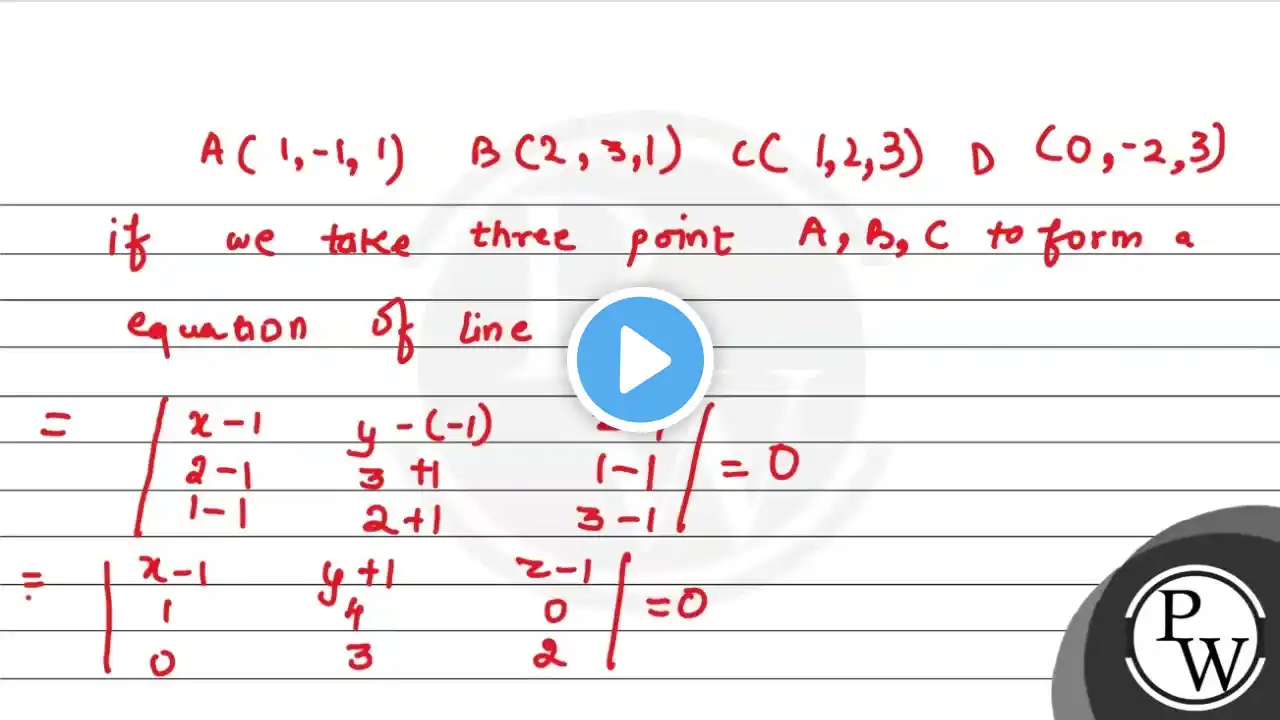 A(1,-1,1) B(2,3,1) C(1,2,3) D(0,-2,3)
if we take three point A, B, C to form a
equation of line
= | x-1 y-(-1)
2-1 3+1 1-1 | = 0
1-1 2+1 3-1
= | x-1 y+1 z-1 |
1 4 0 =0
0 3 2
P
W